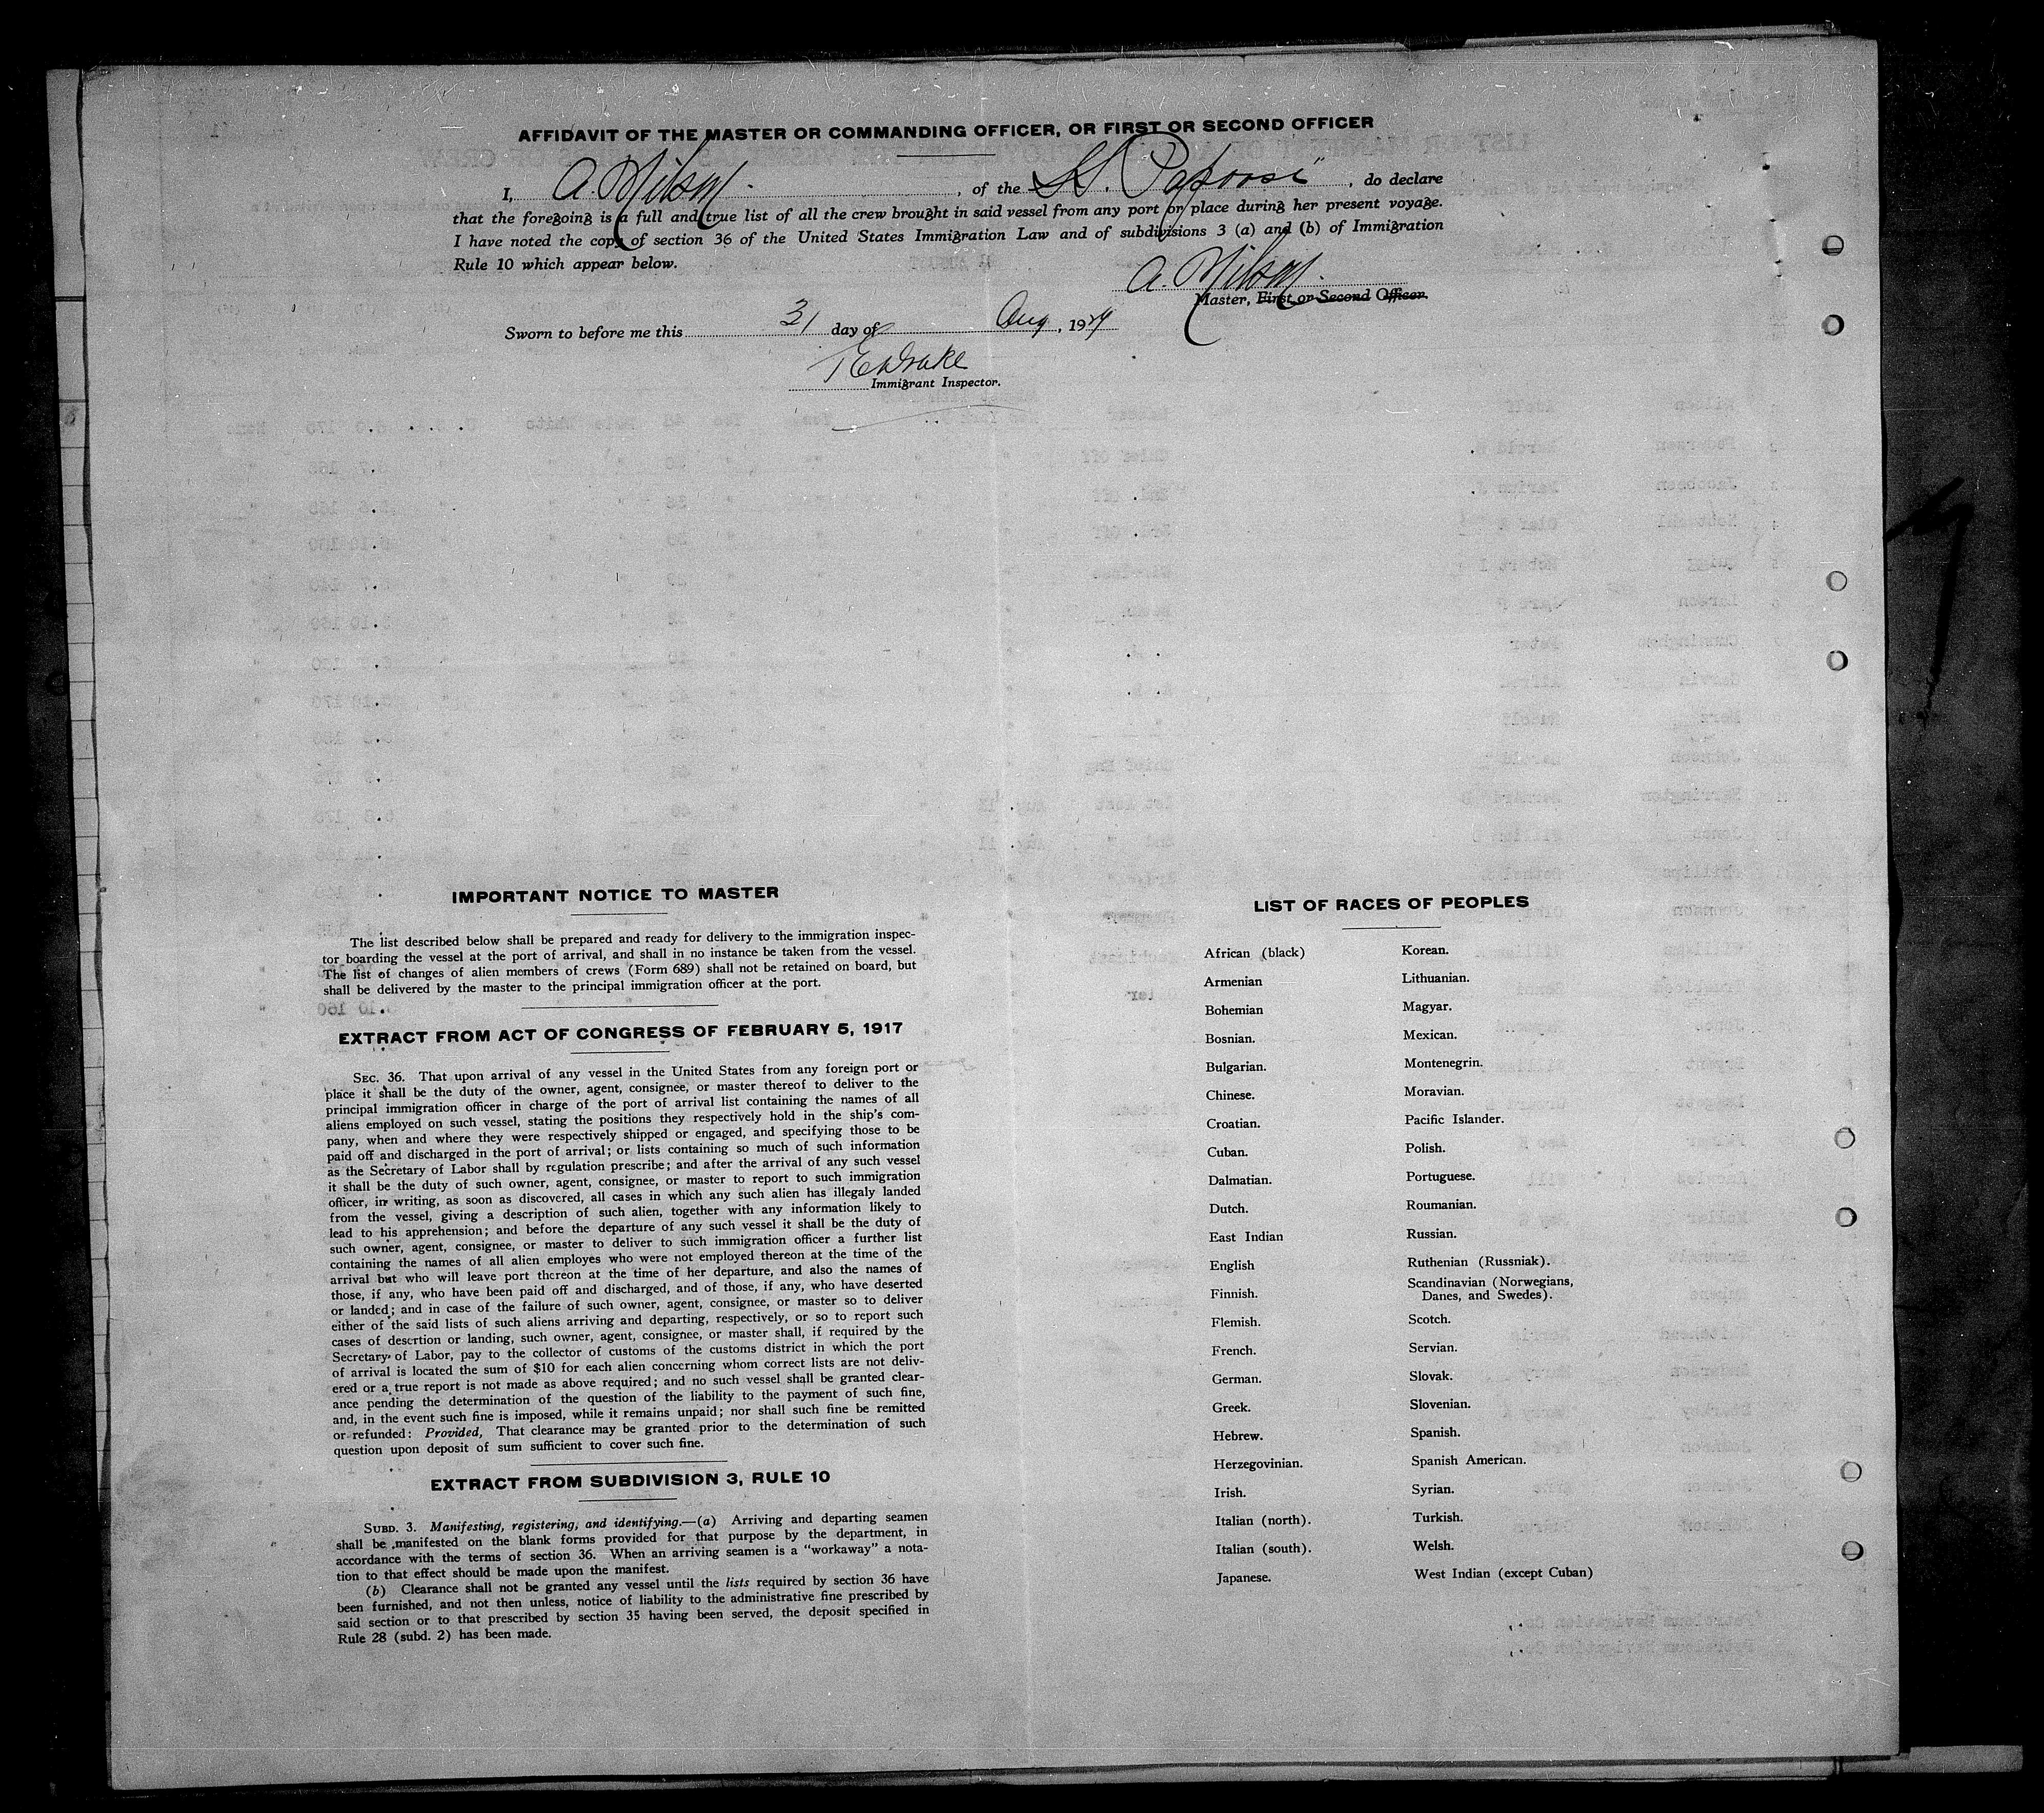 AFFIDAVIT OF THE MASTER OR COMMANDING OFFICER, OR FIRST OR SECOND OFFICER
I, A. Nilsen. , of the SS. "Papoose" , do declare
that the foregoing is a full and true list of all the crew brought in said vessel from any port or place during her present voyage.
I have noted the copy of section 36 of the United States Immigration Law and of subdivisions 3 (a) and (b) of Immigration
Rule 10 which appear below.
A. Nilsen.
Master, First or Second Officer.
Sworn to before me this 31 day of Aug , 19
Drake
Immigrant Inspector.
IMPORTANT NOTICE TO MASTER
The list described below shall be prepared and ready for delivery to the immigration inspec-
tor boarding the vessel at the port of arrival, and shall in no instance be taken from the vessel.
The list of changes of alien members of crews (Form 689) shall not be retained on board, but
shall be delivered by the master to the principal immigration officer at the port.
EXTRACT FROM ACT OF CONGRESS OF FEBRUARY 5, 1917
SEC. 36. That upon arrival of any vessel in the United States from any foreign port or
place it shall be the duty of the owner, agent, consignee, or master thereof to deliver to the
principal immigration officer in charge of the port of arrival list containing the names of all
aliens employed on such vessel, stating the positions they respectively hold in the ship's com-
pany, when and where they were respectively shipped or engaged, and specifying those to be
paid off and discharged in the port of arrival; or lists containing so much of such information
as the Secretary of Labor shall by regulation prescribe; and after the arrival of any such vessel
it shall be the duty of such owner, agent, consignee, or master to report to such immigration
officer, in writing, as soon as discovered, all cases in which any such alien has illegaly landed
from the vessel, giving a description of such alien, together with any information likely to
lead to his apprehension; and before the departure of any such vessel it shall be the duty of
such owner, agent, consignee, or master to deliver to such immigration officer a further list
containing the names of all alien employes who were not employed thereon at the time of the
arrival but who will leave port thereon at the time of her departure, and also the names of
those, if any, who have been paid off and discharged, and of those, if any, who have deserted
or landed; and in case of the failure of such owner, agent, consignee, or master so to deliver
either of the said lists of such aliens arriving and departing, respectively, or so to report such
cases of desertion or landing, such owner, agent, consignee, or master shall, if required by the
Secretary of Labor, pay to the collector of customs of the customs district in which the port
of arrival is located the sum of $10 for each alien concerning whom correct lists are not deliv-
ered or a true report is not made as above required; and no such vessel shall be granted clear-
ance pending the determination of the question of the liability to the payment of such fine,
and, in the event such fine is imposed, while it remains unpaid; nor shall such fine be remitted
or refunded: Provided, That clearance may be granted prior to the determination of such
question upon deposit of sum sufficient to cover such fine.
EXTRACT FROM SUBDIVISION 3, RULE 10
SUBD. 3. Manifesting, registering, and identifying.—(a) Arriving and departing seamen
shall be manifested on the blank forms provided for that purpose by the department, in
accordance with the terms of section 36. When an arriving seamen is a "workaway" a nota-
tion to that effect should be made upon the manifest.
(b) Clearance shall not be granted any vessel until the lists required by section 36 have
been furnished, and not then unless, notice of liability to the administrative fine prescribed by
said section or to that prescribed by section 35 having been served, the deposit specified in
Rule 28 (subd. 2) has been made.
LIST OF RACES OF PEOPLES
African (black)
Armenian
Bohemian
Bosnian.
Bulgarian.
Chinese.
Croatian.
Cuban.
Dalmatian.
Dutch.
East Indian
English
Finnish.
Flemish.
French.
German.
Greek.
Hebrew.
Herzegovinian.
Irish.
Italian (north).
Italian (south).
Japanese.
Korean.
Lithuanian.
Magyar.
Mexican.
Montenegrin.
Moravian.
Pacific Islander.
Polish.
Portuguese.
Roumanian.
Russian.
Ruthenian (Russniak).
Scandinavian (Norwegians,
Danes, and Swedes).
Scotch.
Servian.
Slovak.
Slovenian.
Spanish.
Spanish American.
Syrian.
Turkish.
Welsh.
West Indian (except Cuban)